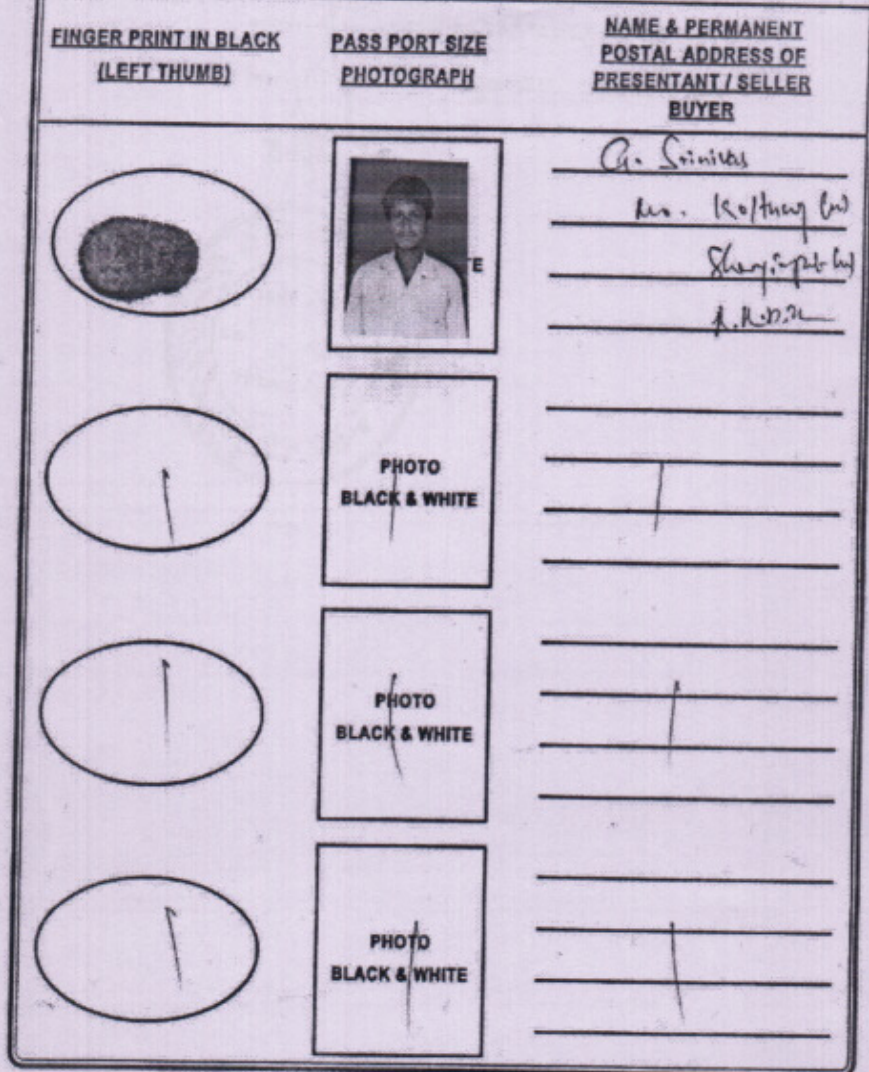 FINGER PRINT IN BLACK
(LEFT THUMB)
PASS PORT SIZE
PHOTOGRAPH
NAME & PERMANENT
POSTAL ADDRESS OF
PRESENTANT / SELLER
BUYER
G. Srinivas
E
PHOTO
BLACK & WHITE
PHOTO
BLACK & WHITE
PHOTO
BLACK & WHITE